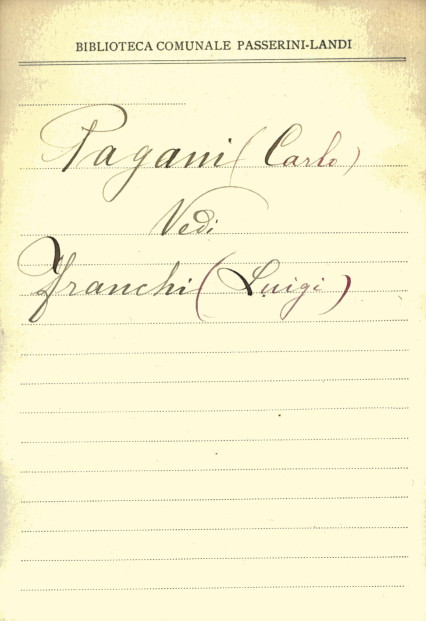 BIBLIOTECA COMUNALE PASSERINI-LANDI
Pagani (Carlo)
Vedi
Franchi (Luigi)